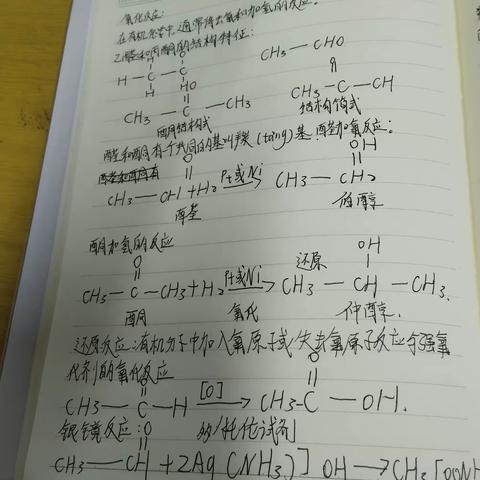 氧化反应:
在有机化学中,通常将去氧和加氢的反应。
乙醛和丙酮的结构特征:
O
H — C — C
H HO
CH3 — CHO
O
CH3 — C — CH3
酮结构式
O
CH3 — C — CH
结构简式
醛和酮有一个共同的基叫羰(tāng)基.醛基加氢反应:
醛基和酮有
O OH
CH3 — CH + H2 Pt或Ni→ CH3 — CH2
醛基 伯醇
酮加氢的反应
O OH
CH3 — C — CH3 + H2 Pt或Ni→ 还原 CH3 — CH — CH3.
酮 氧化 仲醇.
还原反应:有机分子中加入氧原子或失去氢原子反应 强氧
化剂的氧化反应
O O
CH3 — C — H [O]→ CH3-C — OH.
银镜反应: 试剂
O
CH3 — CH + 2Ag(NH3)] OH → CH3[OONH